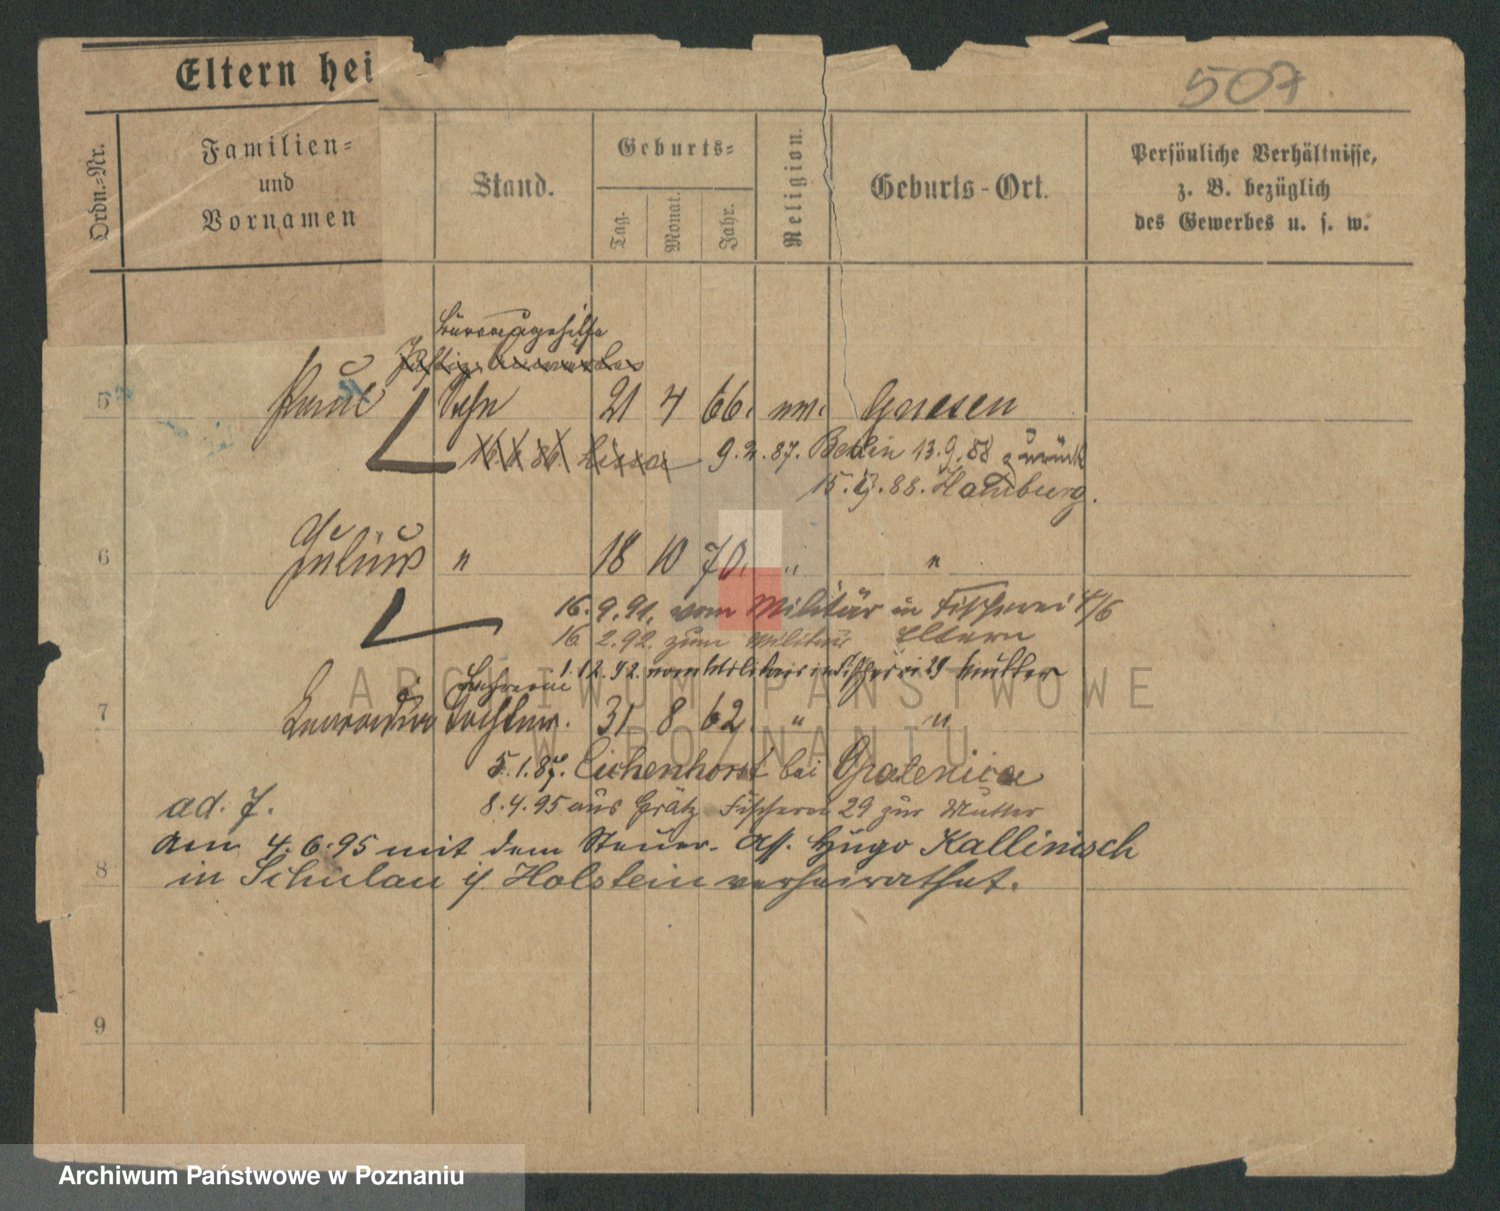 507
Eltern hei
Ordn.-Nr.
Familien-
und
Vornamen
Stand.
Geburts-
Tag.
Monat.
Jahr.
Religion.
Geburts-Ort.
Persönliche Verhältnisse,
z. B. bezüglich
des Gewerbes u. s. w.
Bureaugehilfe
5 Paul Sohn 21 4 66. ev. Gnesen
Lissa 9.2.87. Berlin 13.9.88 zurück
15.9.88. Hamburg.
6 Julius " 18 10 70. " "
16.9.91. vom Militär in Fischerei 4/6
16 2.92. zum Militär Eltern
1.12.92. vom Militair in Fischerei 29 Mutter
Lehrerin
7 Tochter. 31 8 62. " "
5.1.87. Eichenhorst bei
8.4.95 aus Grätz Fischerei 29 zur Mutter
ad. 7.
am 4.6.95 mit dem Steuer- Ass. Hugo Kallinisch
8 in Schulau i/ Holstein verheirathet.
9
ARCHIWUM PAŃSTWOWE
W POZNANIU
Archiwum Państwowe w Poznaniu